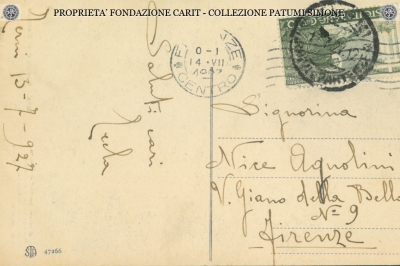 PROPRIETA' FONDAZIONE CARIT - COLLEZIONE PATUMI SIMONE
Terni 13-7-927
Saluti cari
FIRENZE
0-1
14·VII
1927
CENTRO
Signorina
Nice Agnolini
V. Giano della Bella
No 9
Firenze
47266